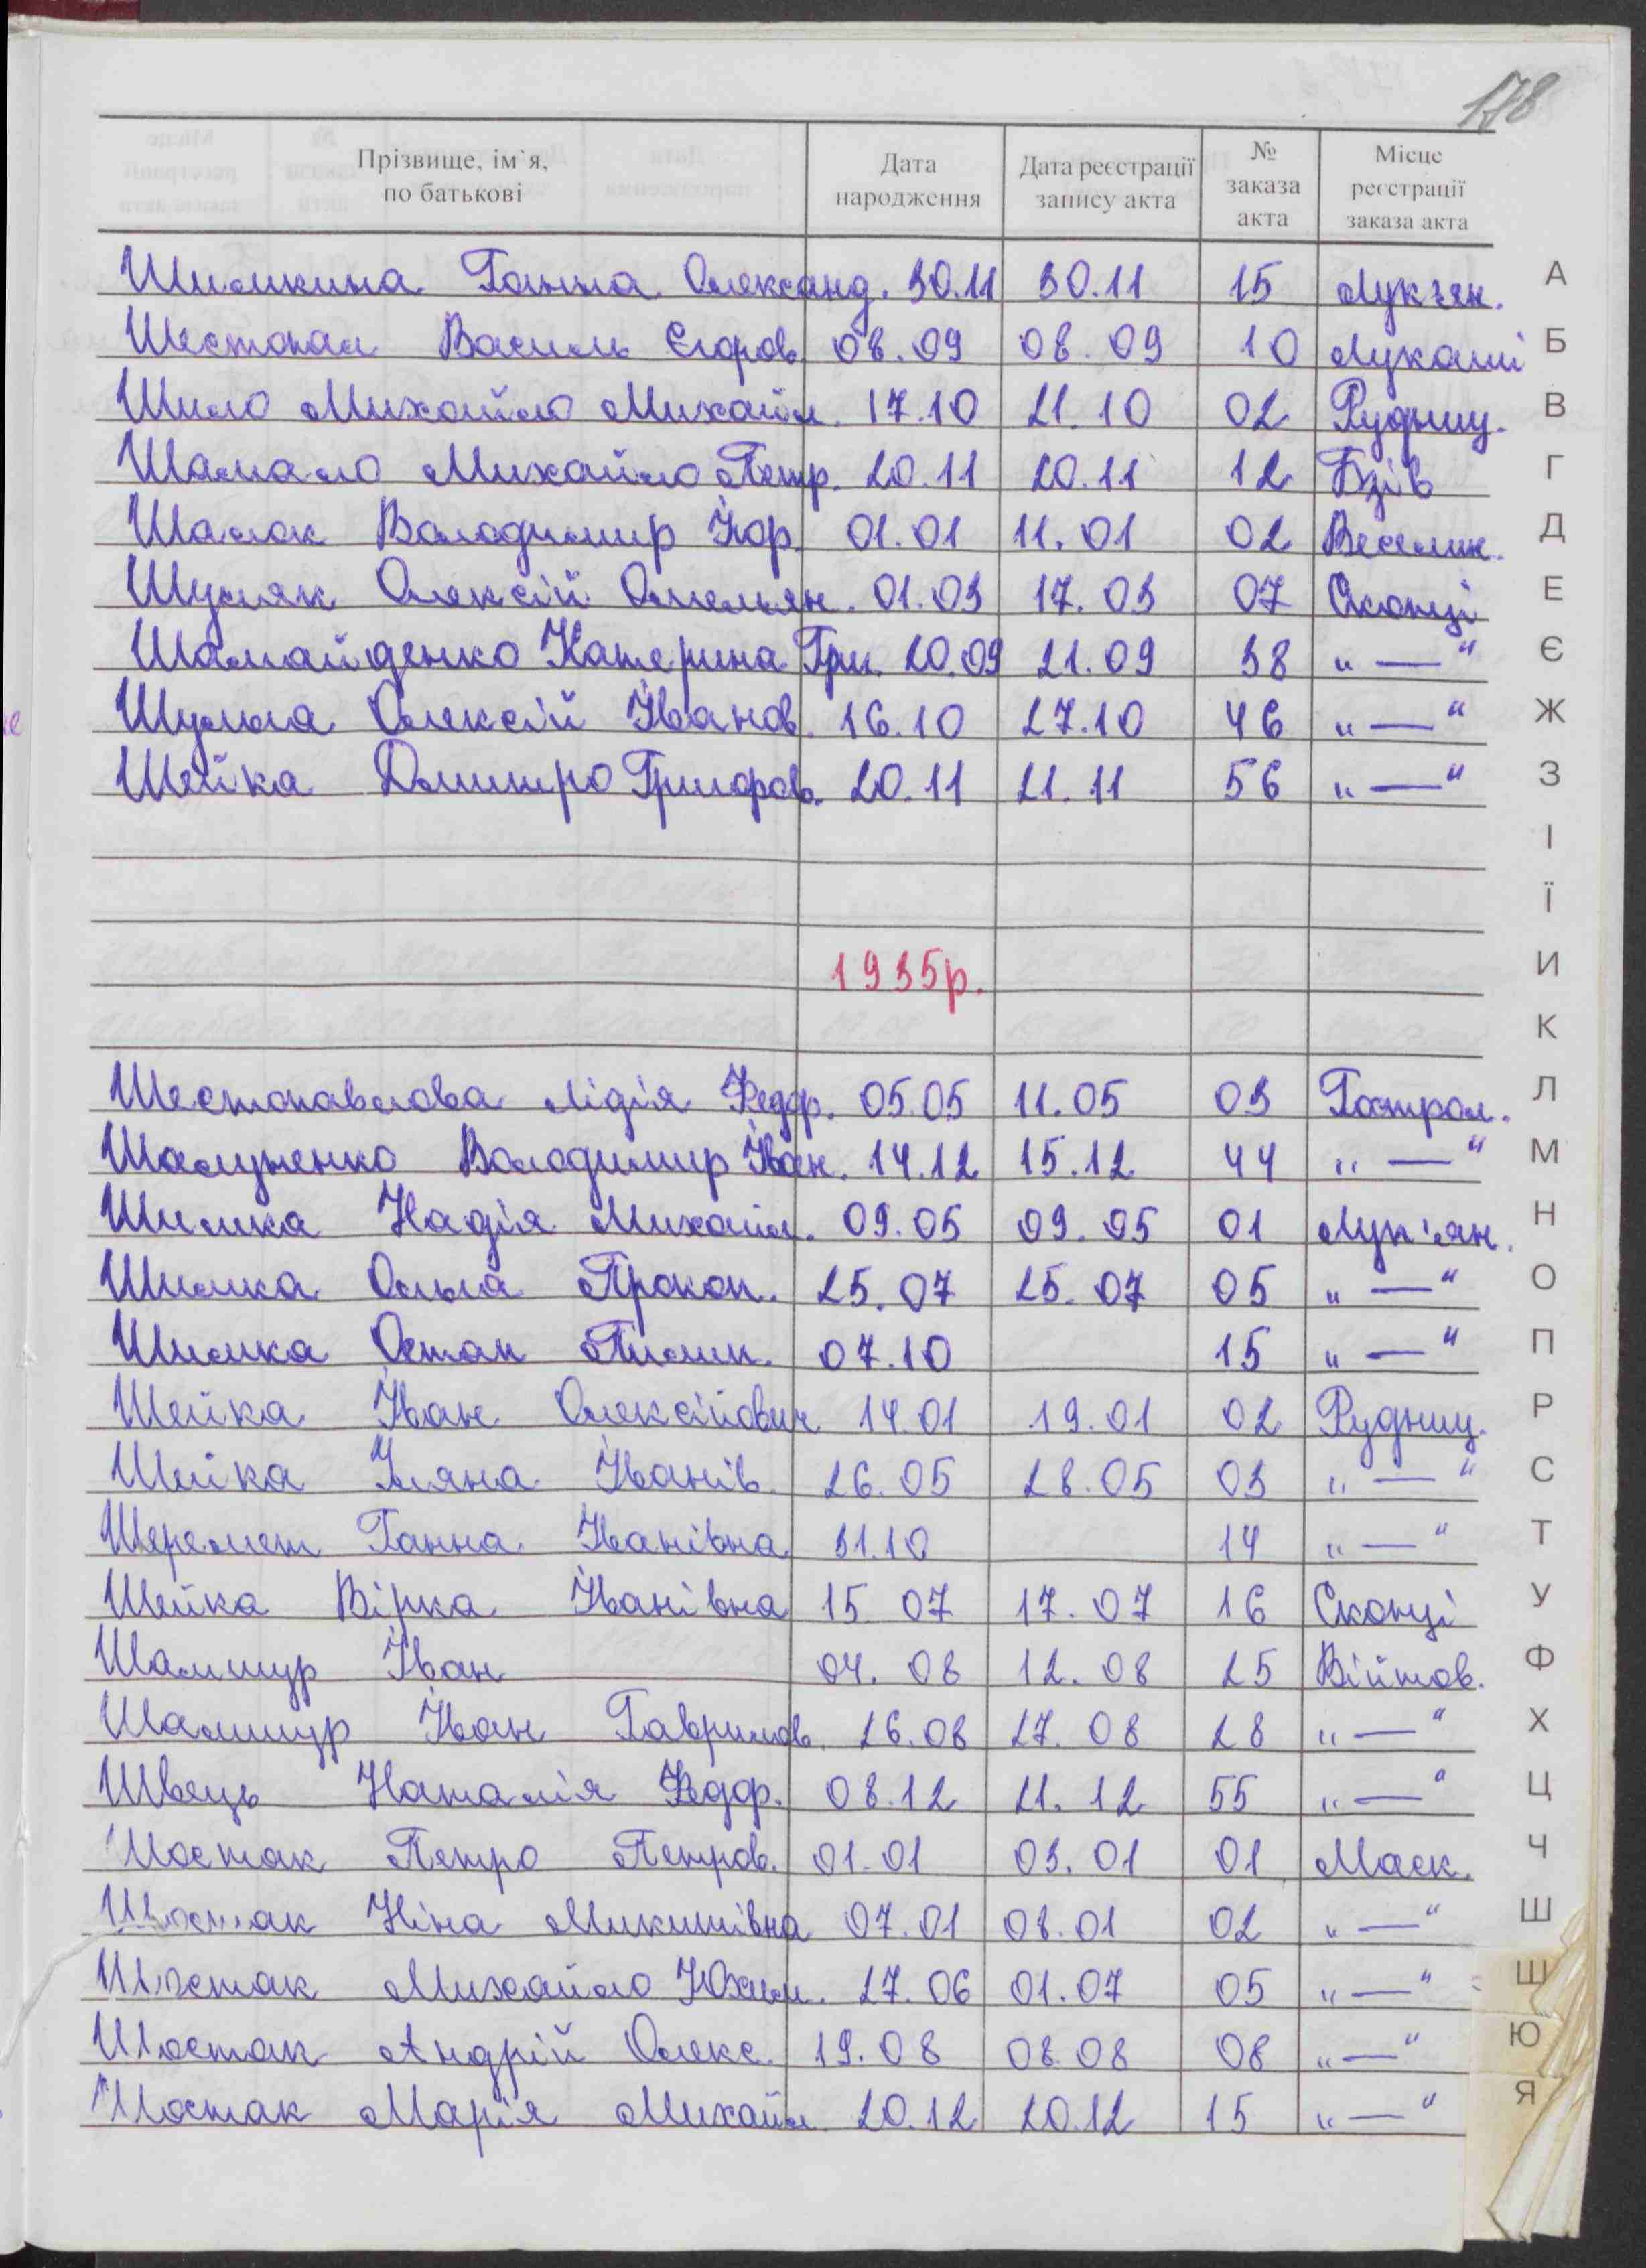 178
Прізвище, ім`я, по батькові Дата народження Дата реєстрації запису акта № заказа акта Місце реєстрації заказа акта
Шилкина Ганна Олександ. 30.11 30.11 15 Лук'ян. А
Шестопал Василь Єгоров. 08.09 08.09 10 Лукаші Б
Шило Михайло Михайл. 17.10 21.10 02 Рудниц. В
Шамало Михайло Петр. 20.11 20.11 12 Бзів Г
Шалок Володимир Йор. 01.01 11.01 02 Веселин. Д
Шуляк Олексій Омельян. 01.03 17.03 07 Скопці Е
Шамайденко Катерина Гри. 20.09 21.09 38 „ — “ Є
Шульга Олексій Іванов. 16.10 27.10 46 „ — “ Ж
Шейка Дмитро Григоров. 20.11 21.11 56 „ — “ З
І
Ї
1935р. И
К
Шестопавлова Лідія Федор. 05.05 11.05 03 Гостром. Л
Шалуженко Володимир Іван. 14.12 15.12 44 „ — “ М
Шилка Надія Михайл. 09.05 09.05 01 Лук'ян. Н
Шилка Ольга Прокоп. 25.07 25.07 05 „ — “ О
Шилка Остап Пилип. 07.10 15 „ — “ П
Шейка Іван Олексійович 14.01 19.01 02 Рудниц. Р
Шейка Уляна Іванів. 26.05 28.05 03 „ — “ С
Шеремет Ганна Іванівна 31.10 14 „ — “ Т
Шейка Вірка Іванівна 15.07 17.07 16 Скопці У
Шамшур Іван 04.08 12.08 25 Війтов. Ф
Шамшур Іван Гаврилов. 26.08 27.08 28 „ — “ Х
Швець Наталія Федор. 08.12 21.12 55 „ — “ Ц
Шостак Петро Петров. 01.01 03.01 01 Маск. Ч
Шостак Ніна Микитівна 07.01 08.01 02 „ — “ Ш
Шостак Михайло Юхим. 27.06 01.07 05 „ — “ Щ
Шостак Андрій Олекс. 19.08 08.08 08 „ — “ Ю
Шостак Марія Михайл. 20.12 20.12 15 „ — “ Я